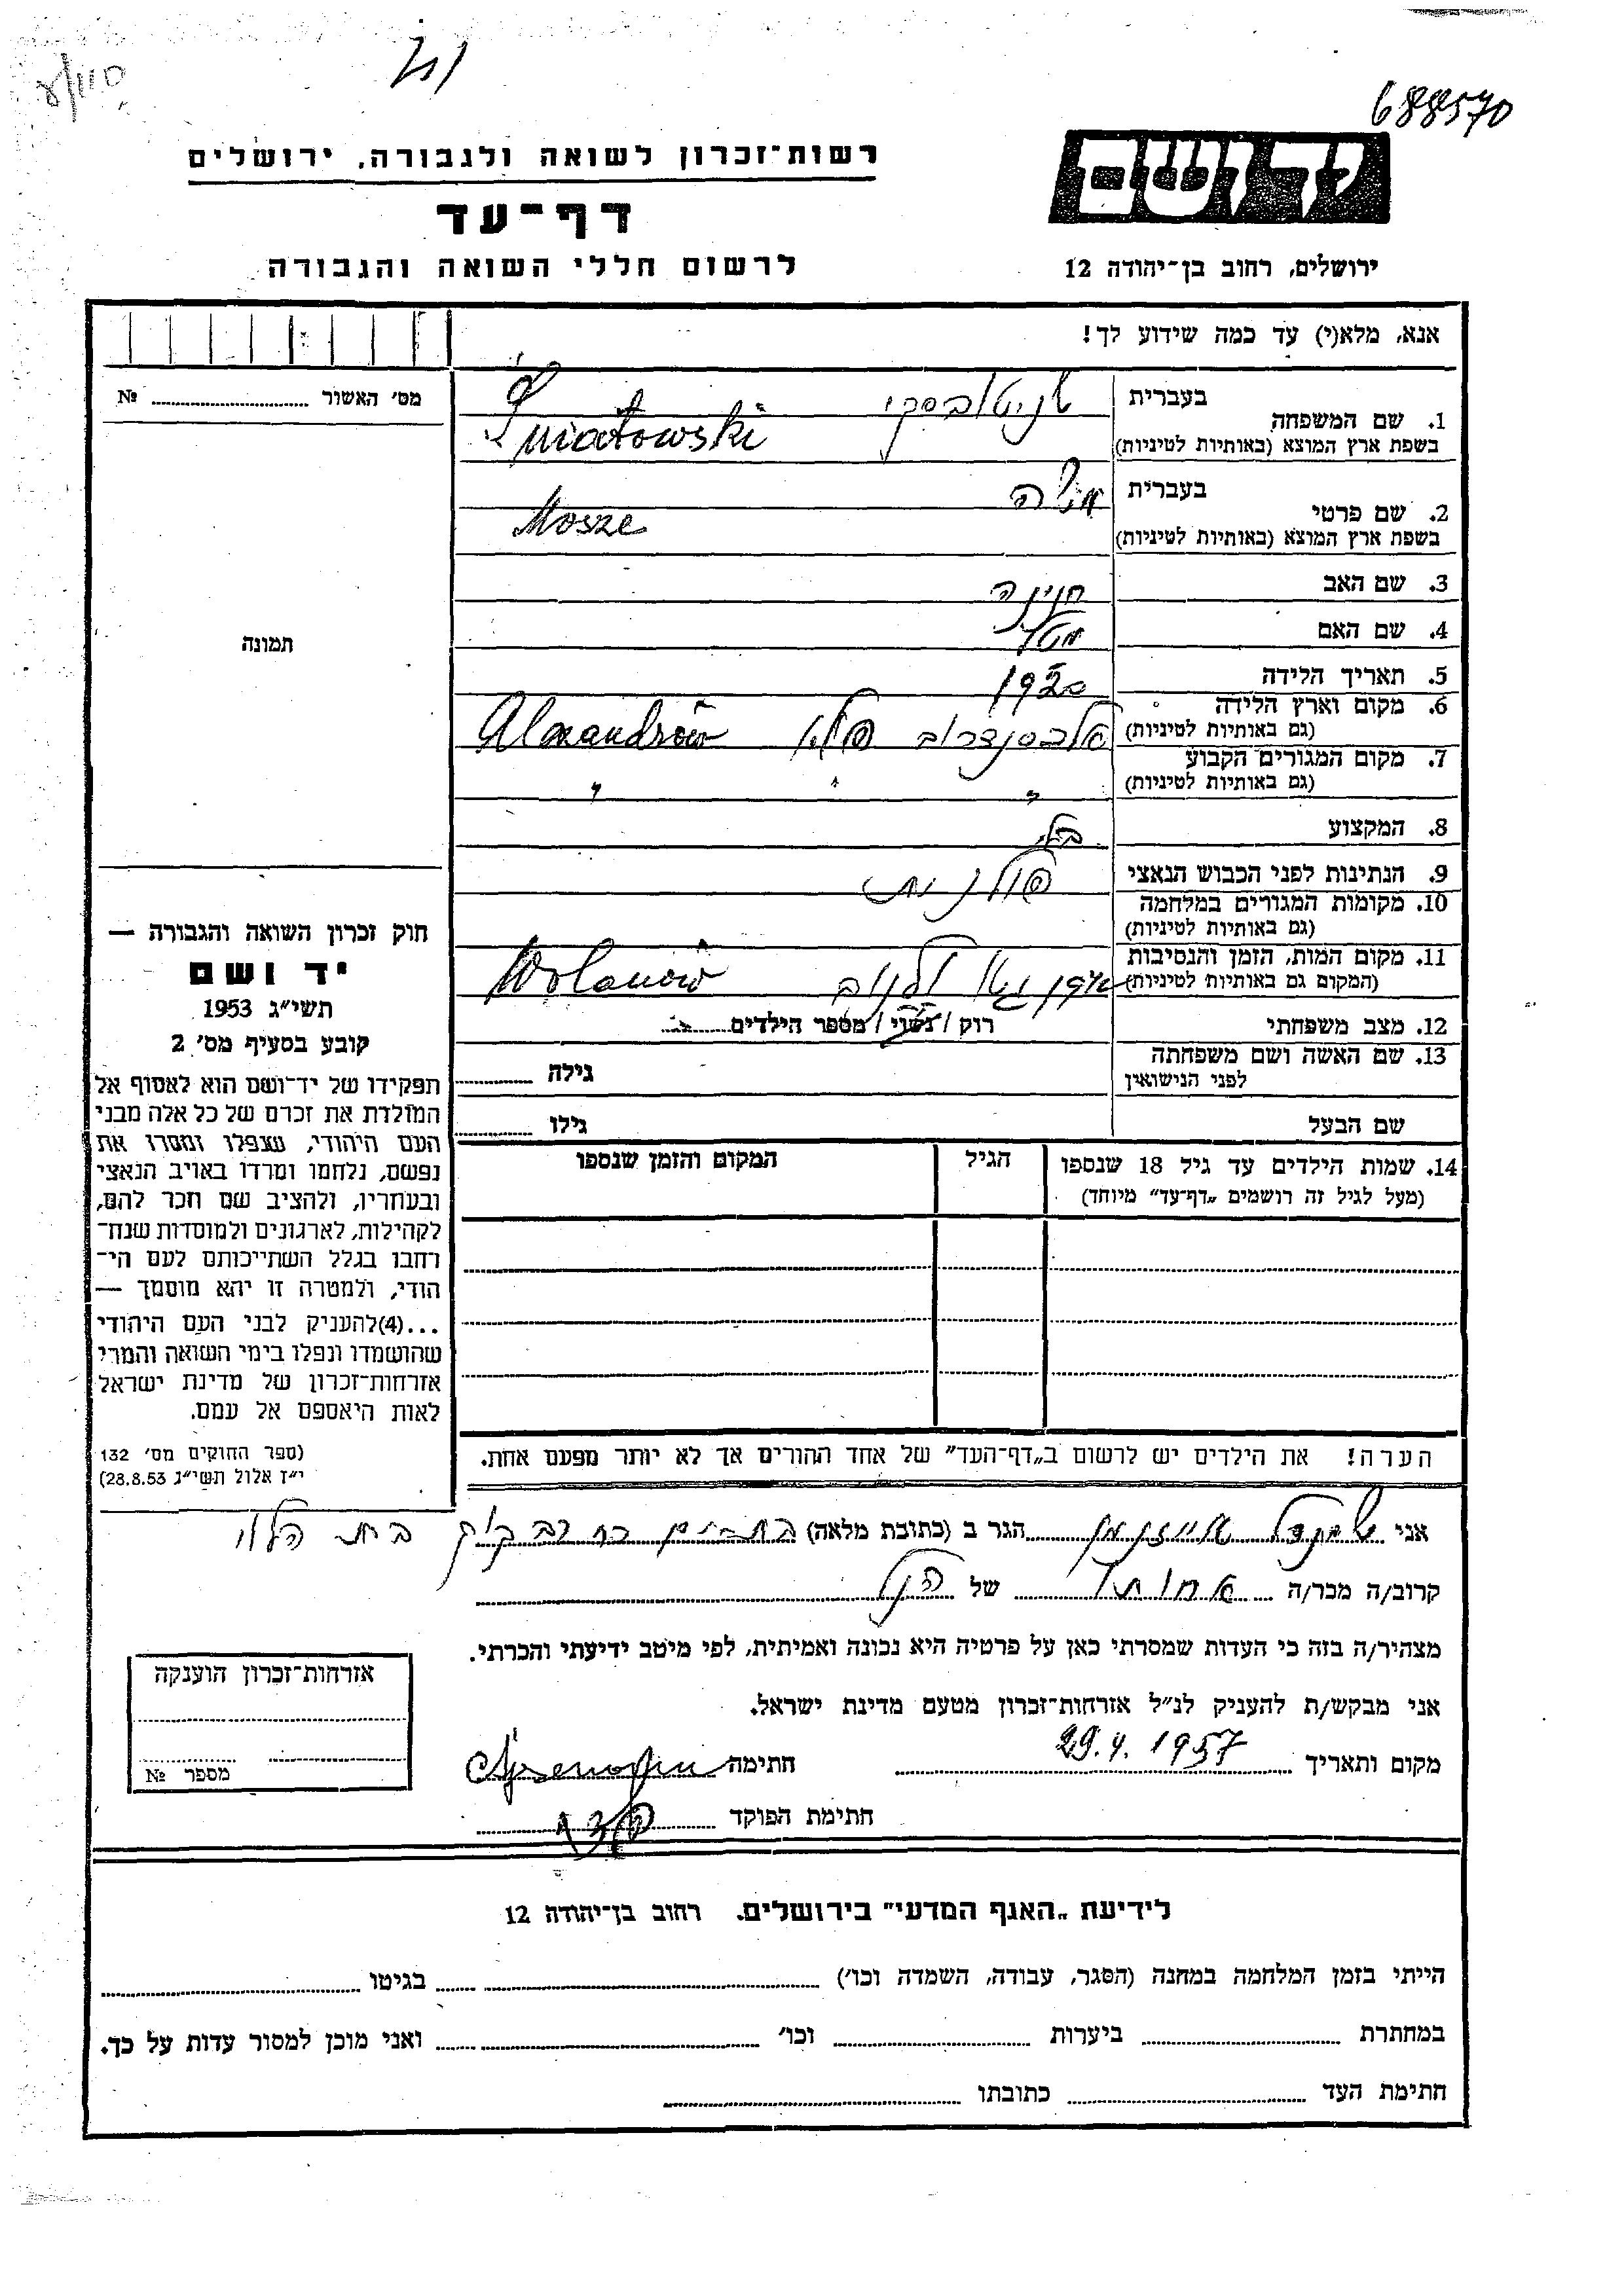 688570
רשות־זכרון לשואה ולגבורה, ירושלים
דף־עד
לרשום חללי השואה והגבורה
ידושם
ירושלים, רחוב בן־יהודה 12
אנא, מלא(י) עד כמה שידוע לך!
מס' האשור №
תמונה
1. שם המשפחה
בעברית שניטובסקי
בשפת ארץ המוצא (באותיות לטיניות) Śniatowski
2. שם פרטי
בעברית משה
בשפת ארץ המוצא (באותיות לטיניות) Mosze
3. שם האב חנינה
4. שם האם
5. תאריך הלידה 1920
6. מקום וארץ הלידה
(גם באותיות לטיניות) אלכסנדרוב פולין Alexandrów
7. מקום המגורים הקבוע
(גם באותיות לטיניות) " " "
8. המקצוע
9. הנתינות לפני הכבוש הנאצי פולנית
10. מקומות המגורים במלחמה
(גם באותיות לטיניות)
11. מקום המות, הזמן והנסיבות
(המקום גם באותיות לטיניות) Wolanów
12. מצב משפחתי רוק / נשוי / מספר הילדים
13. שם האשה ושם משפחתה
לפני הנישואין גילה
שם הבעל גילו
14. שמות הילדים עד גיל 18 שנספו הגיל המקום והזמן שנספו
(מעל לגיל זה רושמים „דף־עד" מיוחד)
הערה! את הילדים יש לרשום ב„דף־העד" של אחד ההורים אך לא יותר מפעם אחת.
חוק זכרון השואה והגבורה —
יד ושם
תשי"ג 1953
קובע בסעיף מס' 2
תפקידו של יד־ושם הוא לאסוף אל
המולדת את זכרם של כל אלה מבני
העם היהודי, שנפלו ומסרו את
נפשם, נלחמו ומרדו באויב הנאצי
ובעוזריו, ולהציב שם וזכר להם,
לקהילות, לארגונים ולמוסדות שנח־
רבו בגלל השתייכותם לעם הי־
הודי, ולמטרה זו יהא מוסמך —
...(4)להעניק לבני העם היהודי
שהושמדו ונפלו בימי השואה והמרי
אזרחות־זכרון של מדינת ישראל
לאות היאספם אל עמם.
(ספר החוקים מס' 132
י"ז אלול תשי"ג 28.8.53)
אני אייזנמן הגר ב (כתובת מלאה) בת־ים
קרוב/ה מכר/ה אחותו של הנ"ל
מצהיר/ה בזה כי העדות שמסרתי כאן על פרטיה היא נכונה ואמיתית, לפי מיטב ידיעתי והכרתי.
אני מבקש/ת להעניק לנ"ל אזרחות־זכרון מטעם מדינת ישראל.
מקום ותאריך 29.4.1957 חתימה
חתימת הפוקד
אזרחות־זכרון הוענקה
מספר №
לידיעת „האגף המדעי" בירושלים. רחוב בן־יהודה 12
הייתי בזמן המלחמה במחנה (הסגר, עבודה, השמדה וכו') בגיטו
במחתרת ביערות וכו' ואני מוכן למסור עדות על כך.
חתימת העד כתובתו